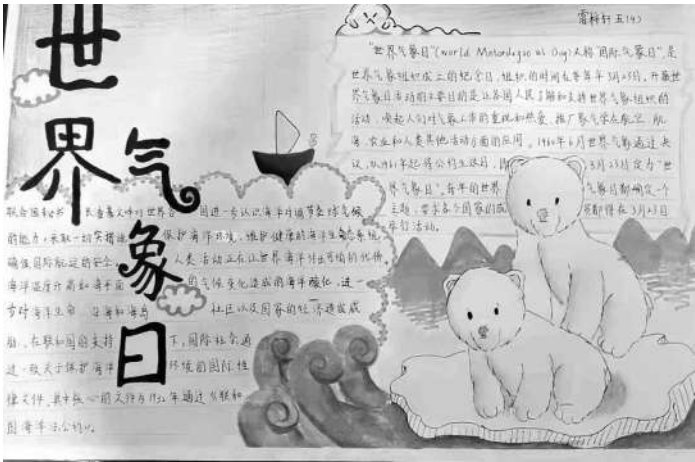 世界气象日
雷梓轩 五(4)
"世界气象日"(World Meteorological Day)又称"国际气象日",是
世界气象组织成立的纪念日,组织的时间在每年3月23日。开展世
界气象日活动的主要目的是让各国人民了解和支持世界气象组织的
活动,唤起人们对气象工作的重视和热爱,推广气象学在航空、航
海、农业和人类其他活动方面的应用。1960年6月世界气象通过决
议,从1961年起将公约生效日,即 3月23日定为"世
界气象日"。每年的世界 气象日都确定一个
主题,要求各个国家的成 员都得在3月23日
举行活动。
联合国秘书 长潘基文呼吁世界各 国进一步认识海洋对调节全球气候
的能力,采取一切实措施 保护海洋环境,维护健康的海洋生态系统
确保国际航运的安全。 人类活动正在让世界海洋付出可怕的代价
海洋温度升高和海平面 的气候变化造成的海洋酸化,进一
步对海洋生命、沿海和海岛 社区以及国家的经济造成威
胁。在联合国的支持 下,国际社会通
过一致关于保护海洋 环境的国际性
律文件,其中核心的文件为1982年通过《联合
国海洋法公约》。